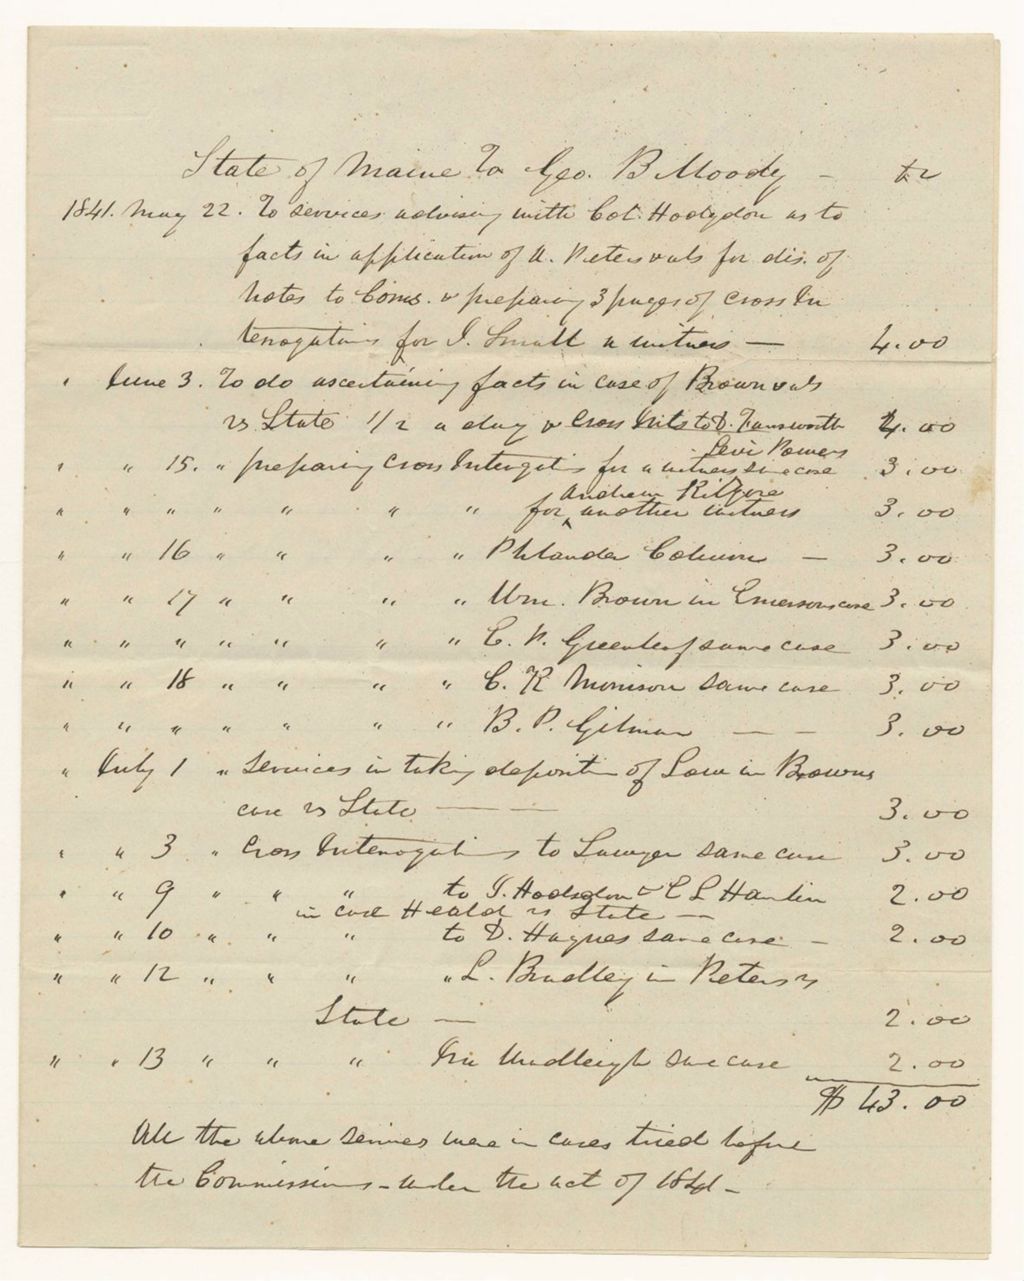 State of Maine To Geo. B Moody - Dr
1841. May 22. To services advising with Col. Hodgdon as to
facts in application of A. Peters & als for dis. of
notes to Coms. & preparing 3 pages of Cross In
terrogatories for I. Small a witness — 4.00
" June 3. To do ascertaining facts in case of Brown & als
vs State 1/2 a day & Cross Ints to D. Farnsworth 4.00
Levi Powers
" " 15. " preparing Cross Interrogatories for a witness same case 3.00
Andrew Kilgore
" " " " " " " for ^ another witness 3.00
" " 16 " " " " Philander Coburn — 3.00
" " 17 " " " " Wm. Brown in Emersons case 3.00
" " " " " " " C. P. Greenleaf same case 3.00
" " 18 " " " " C. K Morrison same case 3.00
" " " " " " " B. P. Gilman — — 3.00
" July 1 " services in taking deposition of Low in Browns
case vs State — — 3.00
" " 3 " Cross Interrogatories to Sawyer same case 3.00
" " 9 " " " to I. Hodsdon & E L Hamlin 2.00
in case Heald vs State —
" " 10 " " " to D. Haynes same case - 2.00
" " 12 " " " " L. Bradley in Peters vs
State — 2.00
" " 13 " " " Ira Wadleigh same case 2.00
$ 43.00
All the above services were in cases tried before
the Commissioners - under the act of 1841 -